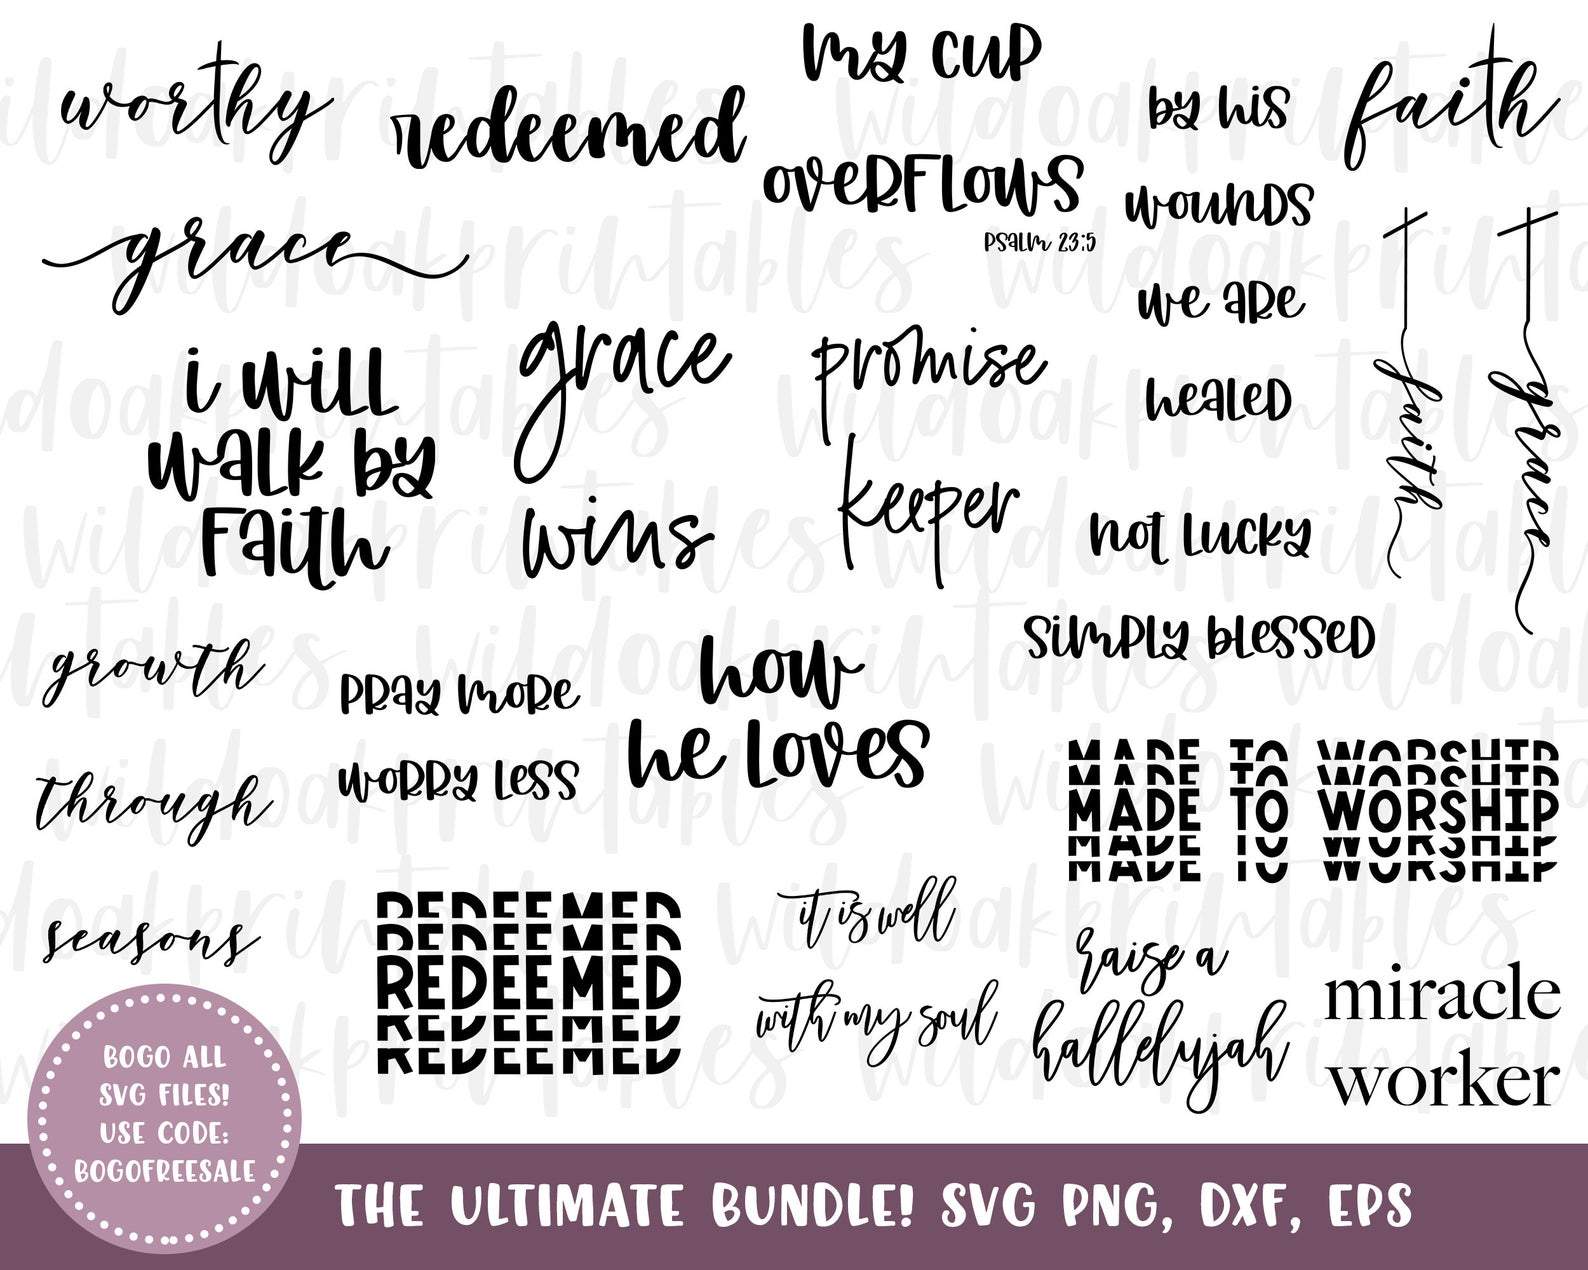 worthy
redeemed
my cup
overflows
Psalm 23:5
by his
wounds
we are
healed
faith
grace
i will
walk by
faith
grace
wins
promise
keeper
faith
grace
not lucky
simply blessed
growth
through
seasons
pray more
worry less
how
he loves
MADE TO WORSHIP
MADE TO WORSHIP
MADE TO WORSHIP
MADE TO WORSHIP
MADE TO WORSHIP
REDEEMED
REDEEMED
REDEEMED
REDEEMED
REDEEMED
it is well
with my soul
raise a
hallelujah
miracle
worker
BOGO ALL
SVG FILES!
USE CODE:
BOGOFREESALE
THE ULTIMATE BUNDLE! SVG PNG, DXF, EPS
wildoakprintables